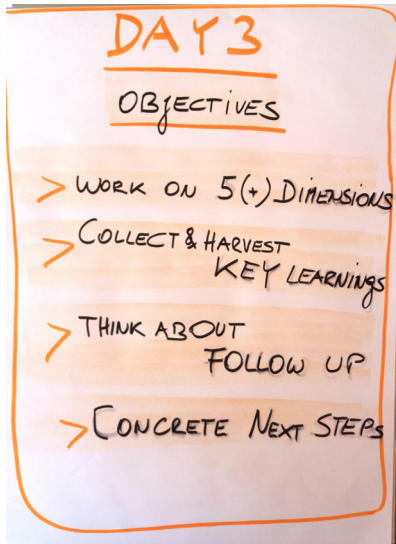 DAY 3
OBjECTiVES
> WORK ON 5(+) DiMENSiONS
> COLLECT & HARVEST
KEY LEARNiNgS
> THINK ABOUT
FOLLOW UP
> CONCRETE NEXT STEPS